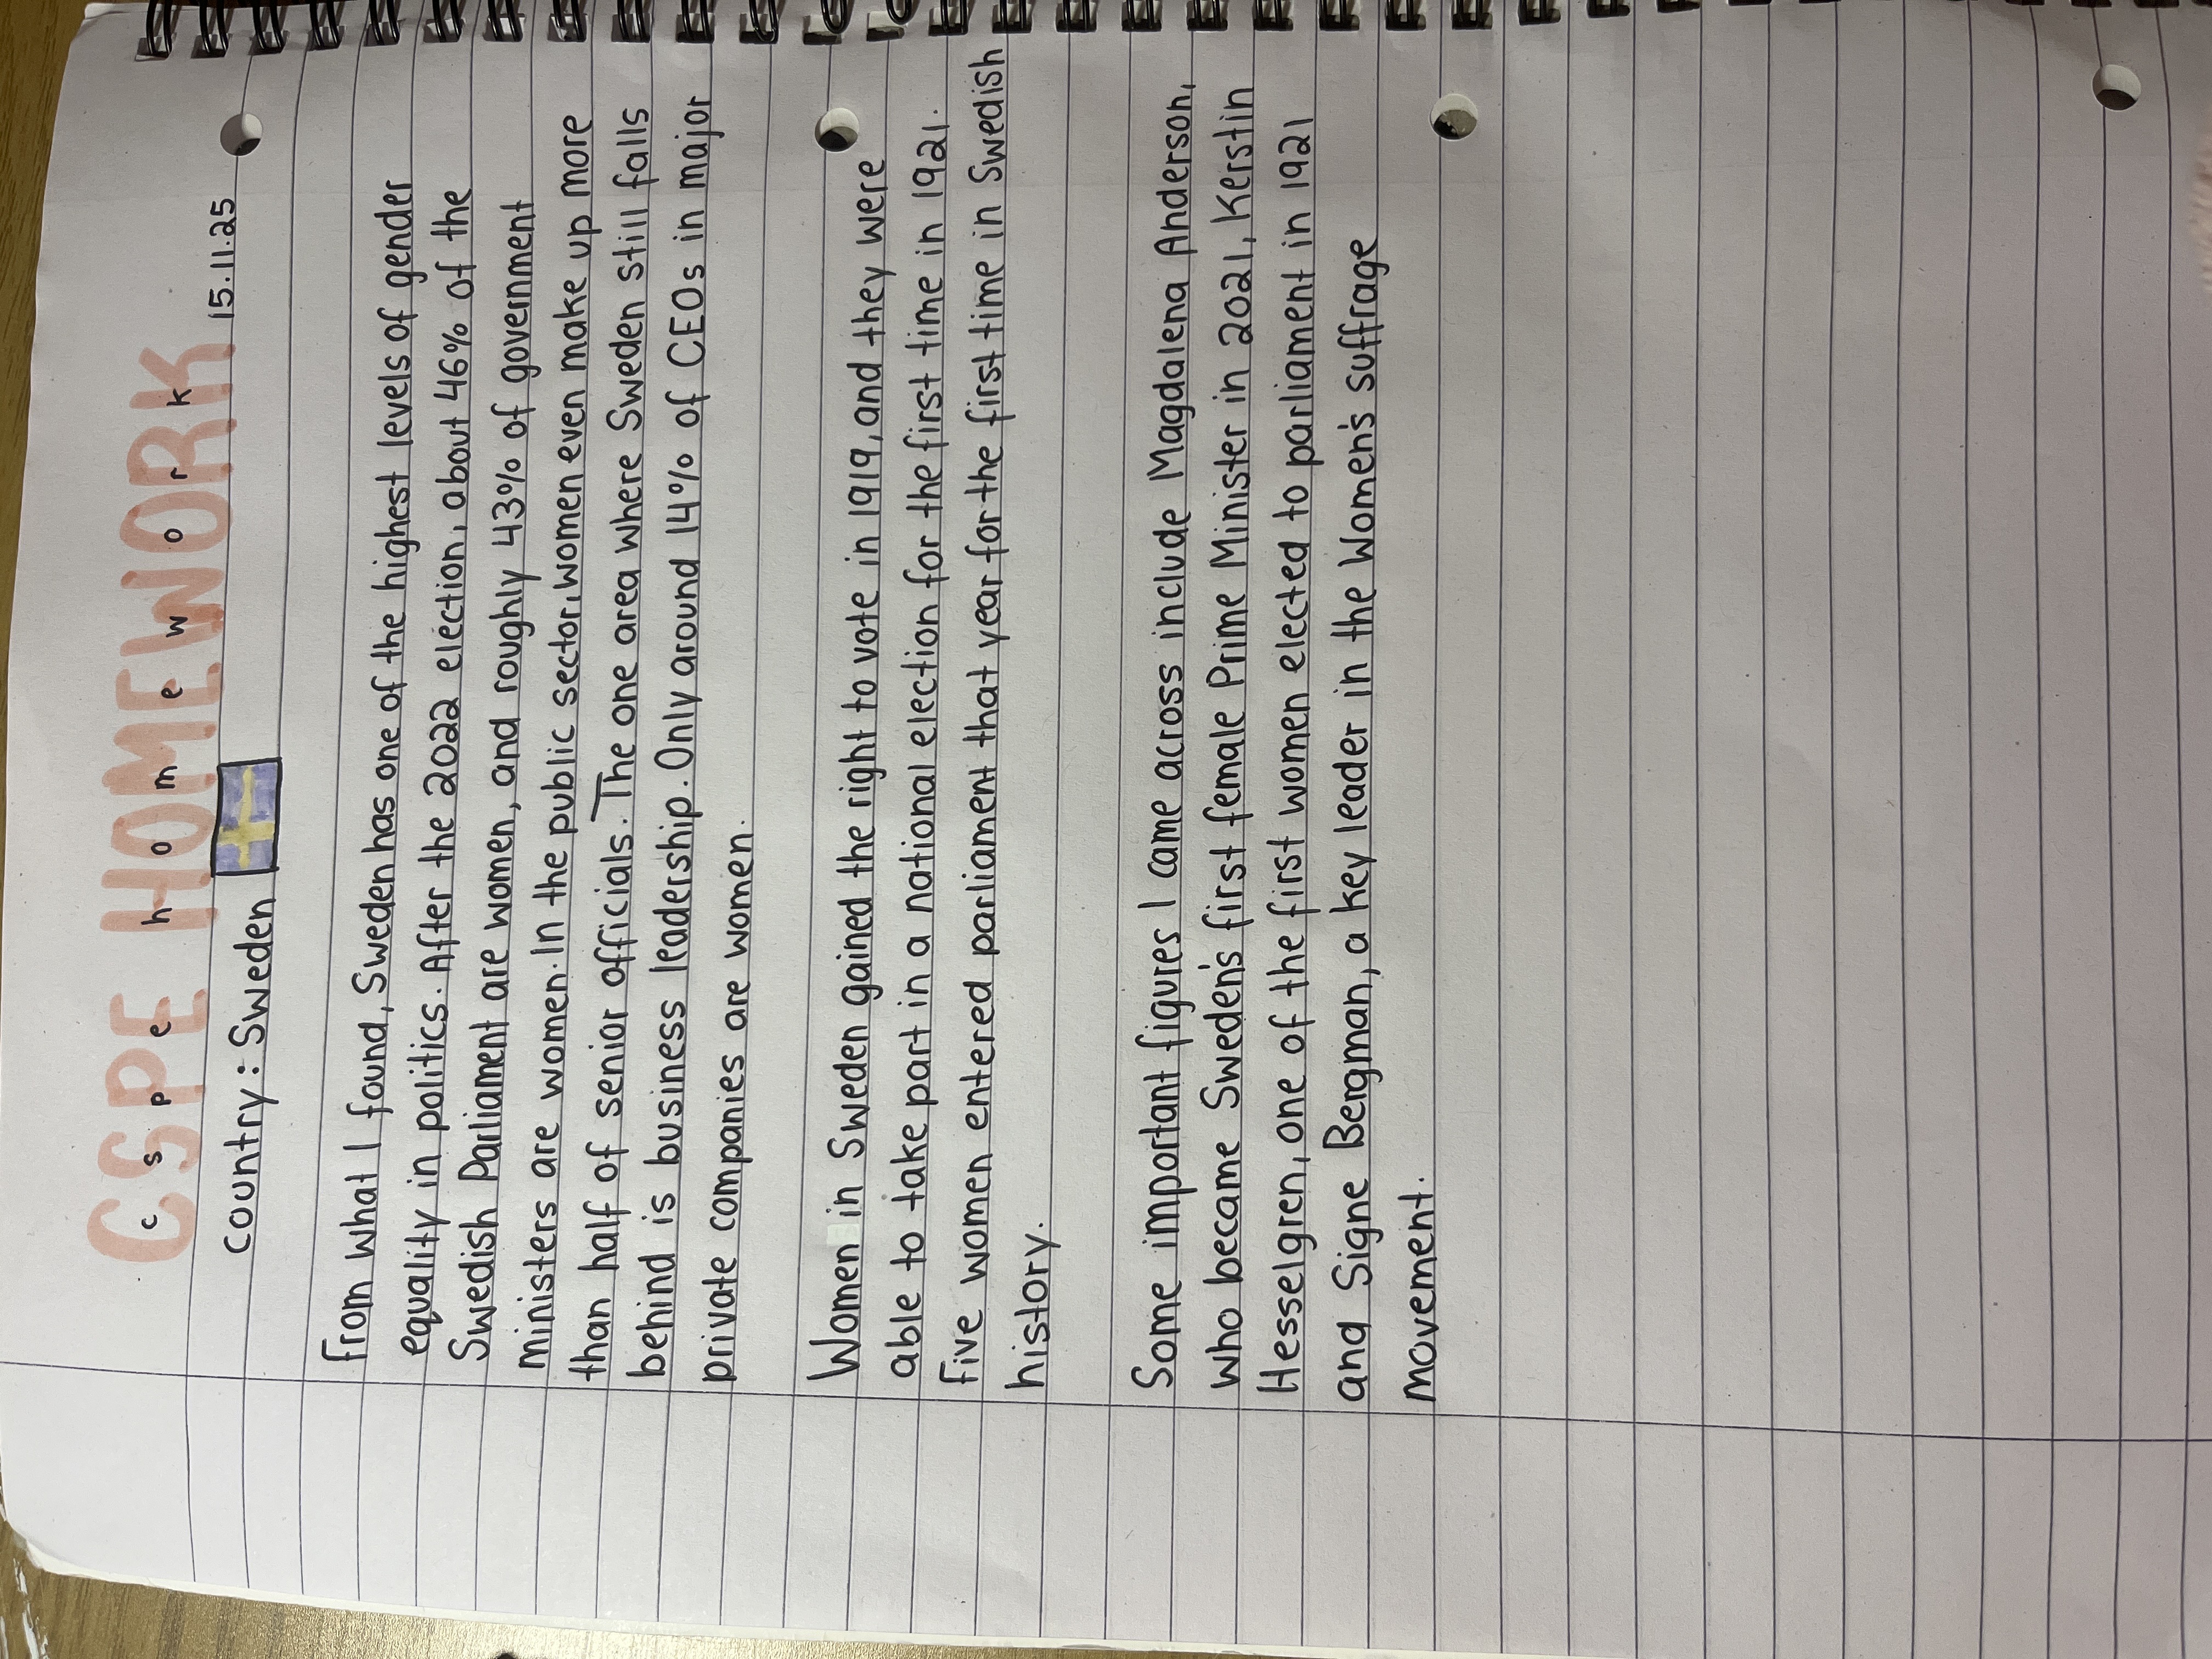 CSPE HOMEWORK
c s p e h o m e w o r k
country: Sweden 15.11.25
From what I found, Sweden has one of the highest levels of gender
equality in politics. After the 2022 election, about 46% of the
Swedish Parliament are women, and roughly 43% of government
ministers are women. In the public sector, women even make up more
than half of senior officials. The one area where Sweden still falls
behind is business leadership. Only around 14% of CEOs in major
private companies are women.
Women in Sweden gained the right to vote in 1919, and they were
able to take part in a national election for the first time in 1921.
Five women entered parliament that year for the first time in Swedish
history.
Some important figures I came across include Magdalena Anderson,
who became Sweden's first female Prime Minister in 2021, Kerstin
Hesselgren, one of the first women elected to parliament in 1921
and Signe Bergman, a key leader in the Women's suffrage
movement.